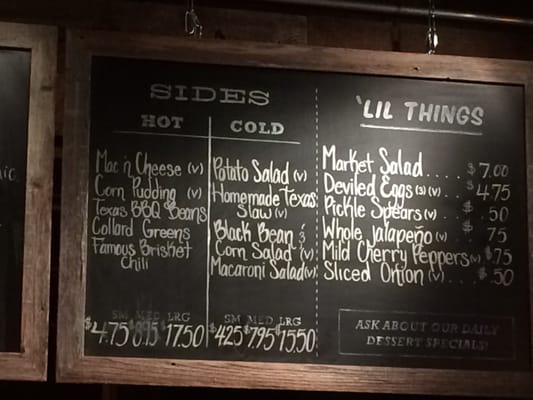 SIDES
HOT
Mac n Cheese (v)
Corn Pudding (v)
Texas BBQ Beans
Collard Greens
Famous Brisket
Chili
SM MED LRG
$4.75 $8.15 $17.50
COLD
Potato Salad (v)
Homemade Texas
Slaw (v)
Black Bean &
Corn Salad (v)
Macaroni Salad (v)
SM MED LRG
$4.25 $7.95 $15.50
'LIL THINGS
Market Salad.... $7.00
Deviled Eggs (3) (v).... $4.75
Pickle Spears (v).... $.50
Whole Jalapeño (v).... $.75
Mild Cherry Peppers (v).. $.75
Sliced Onion (v).... $.50
ASK ABOUT OUR DAILY
DESSERT SPECIALS!